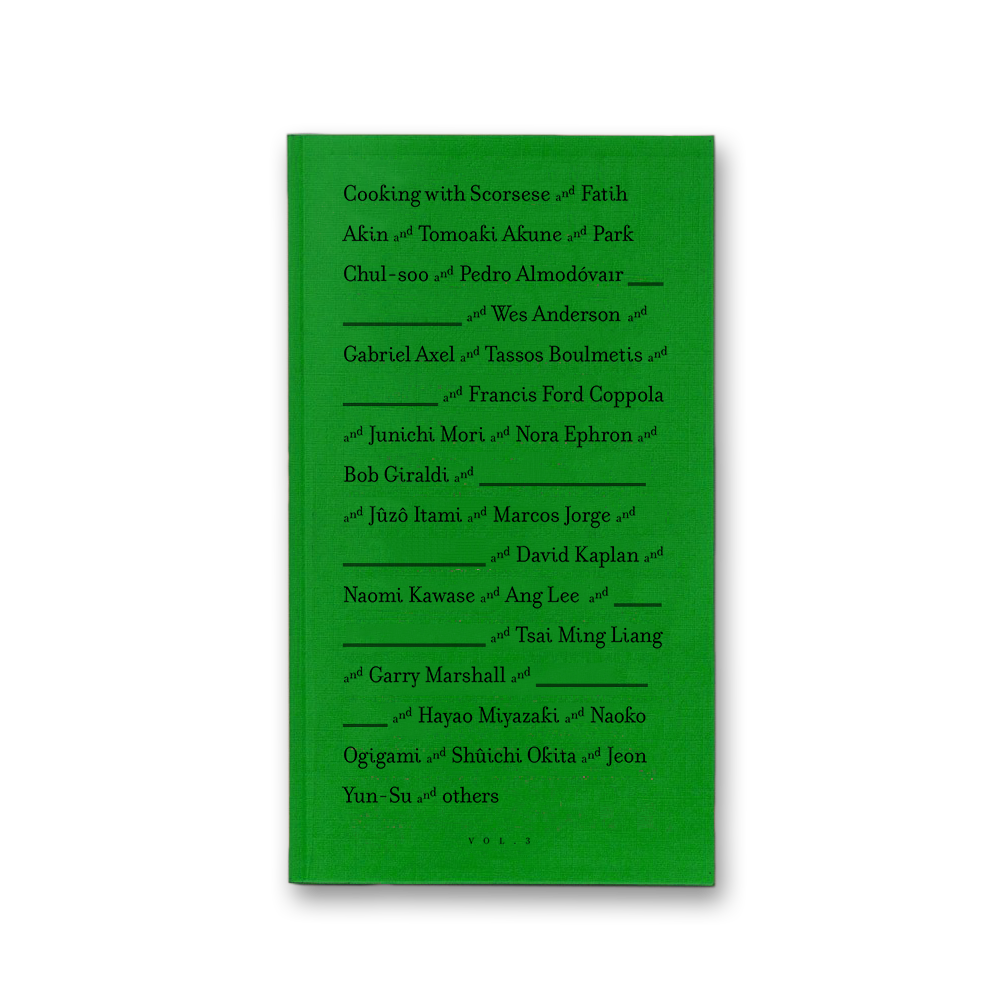 Cooking with Scorsese and Fatih
Akin and Tomoaki Akune and Park
Chul-soo and Pedro Almodóvaır
and Wes Anderson and
Gabriel Axel and Tassos Boulmetis and
and Francis Ford Coppola
and Junichi Mori and Nora Ephron and
Bob Giraldi and
and Jûzô Itami and Marcos Jorge and
and David Kaplan and
Naomi Kawase and Ang Lee and
and Tsai Ming Liang
and Garry Marshall and
and Hayao Miyazaki and Naoko
Ogigami and Shûichi Okita and Jeon
Yun-Su and others
VOL.3